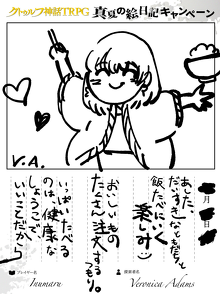 クトゥルフ神話TRPG 真夏の絵日記キャンペーン
V.A.
月
日
あした、
だいすきなともだちと
飯たべにいく
楽しみ
おいしいもの
たくさん注文する
つもり。
いっぱいたべる
のは、健康な
しょうこで
いいことだから
プレイヤー名
Inumaru
探索者名
Veronica Adams